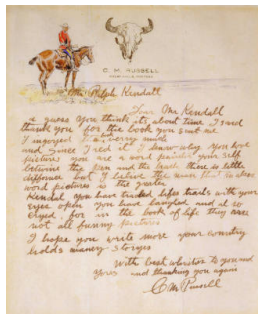 C. M. RUSSELL
GREAT FALLS, MONTANA
Mr Ralph Kendall
Dear Mr Kendall
I guess you think its about time I said
thank you for the book you sent me
I injoyed it very much
and since I red it I know why you love
pictures you are a word painter your self
betwine the pen and the brush there is little
diffornce but I belive the man that makes
word pictures is the greater
Kendal you have traded lifes trails with your
eyes open you have laughed and al so
cryed for in the book of life they are
not all funny pictures
I hope you write more your country
holds maney storyes
With best whishes to you and
yours and thanking you again
C M Russell